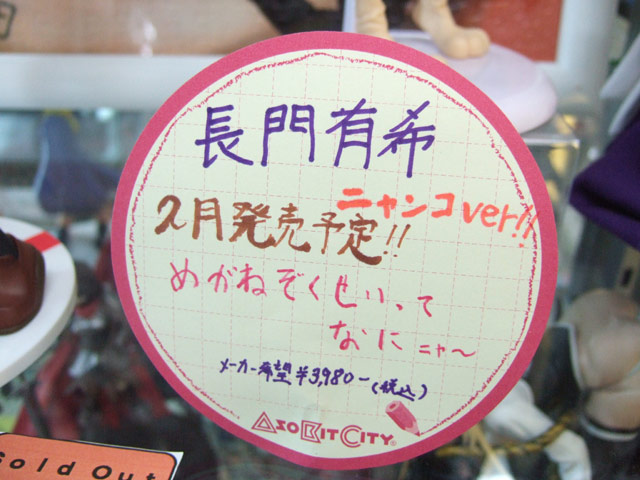 長門有希
ニャンコver!!
2月発売予定!!
めがねぞくせいって
なにニャ〜
メーカー希望¥3,980-(税込)
ASOBITCITY
Sold Out